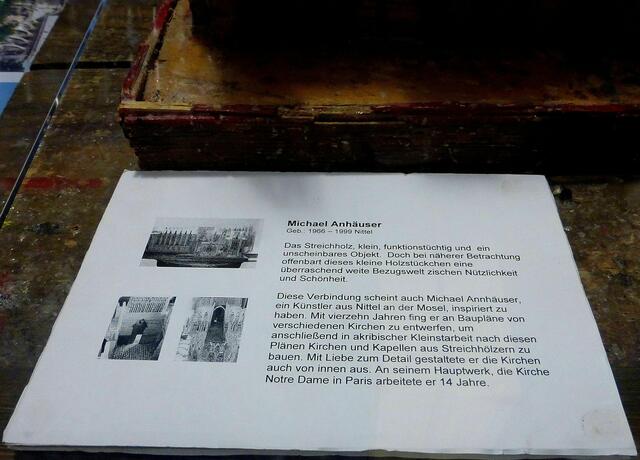 Michael Anhäuser
Geb.: 1966 – 1999 Nittel
Das Streichholz, klein, funktionstüchtig und ein
unscheinbares Objekt. Doch bei näherer Betrachtung
offenbart dieses kleine Holzstückchen eine
überraschend weite Bezugswelt zischen Nützlichkeit
und Schönheit.
Diese Verbindung scheint auch Michael Annhäuser,
ein Künstler aus Nittel an der Mosel, inspiriert zu
haben. Mit vierzehn Jahren fing er an Baupläne von
verschiedenen Kirchen zu entwerfen, um
anschließend in akribischer Kleinstarbeit nach diesen
Plänen Kirchen und Kapellen aus Streichhölzern zu
bauen. Mit Liebe zum Detail gestaltete er die Kirchen
auch von innen aus. An seinem Hauptwerk, die Kirche
Notre Dame in Paris arbeitete er 14 Jahre.